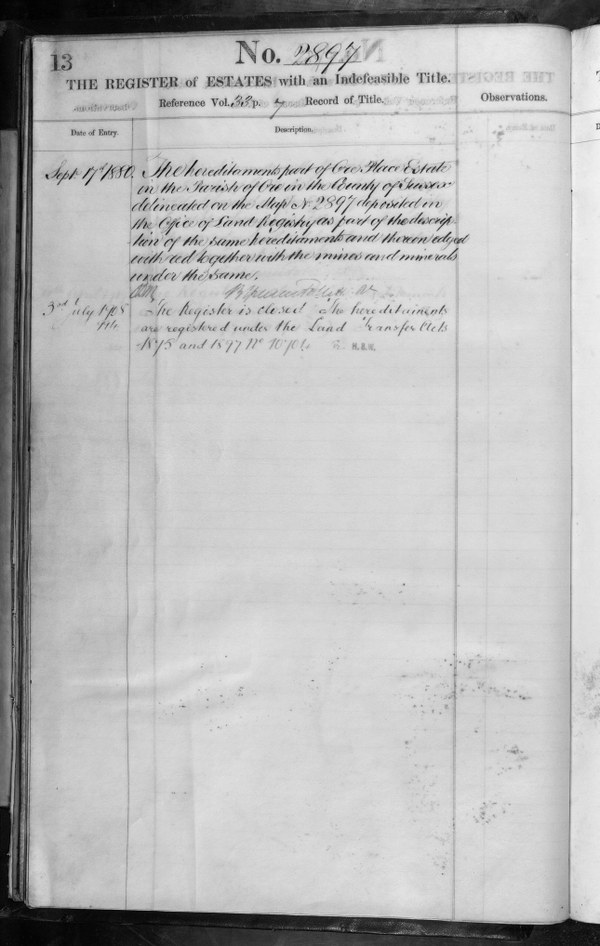 13
No. 2897
THE REGISTER of ESTATES with an Indefeasible Title.
Reference Vol. 33 p. 7 Record of Title.
Observations.
Date of Entry.
Description.
Sept 17th 1880.
The hereditaments part of Ore Place Estate
in the Parish of Ore in the County of Sussex
delineated on the Map No 2897 deposited in
the Office of Land Registry as part of the descrip-
tion of the same hereditaments and thereon edged
with red together with the mines and minerals
under the same.
3rd July
The Register is closed The hereditaments
are registered under the Land Transfer Acts
1875 and 1897 No